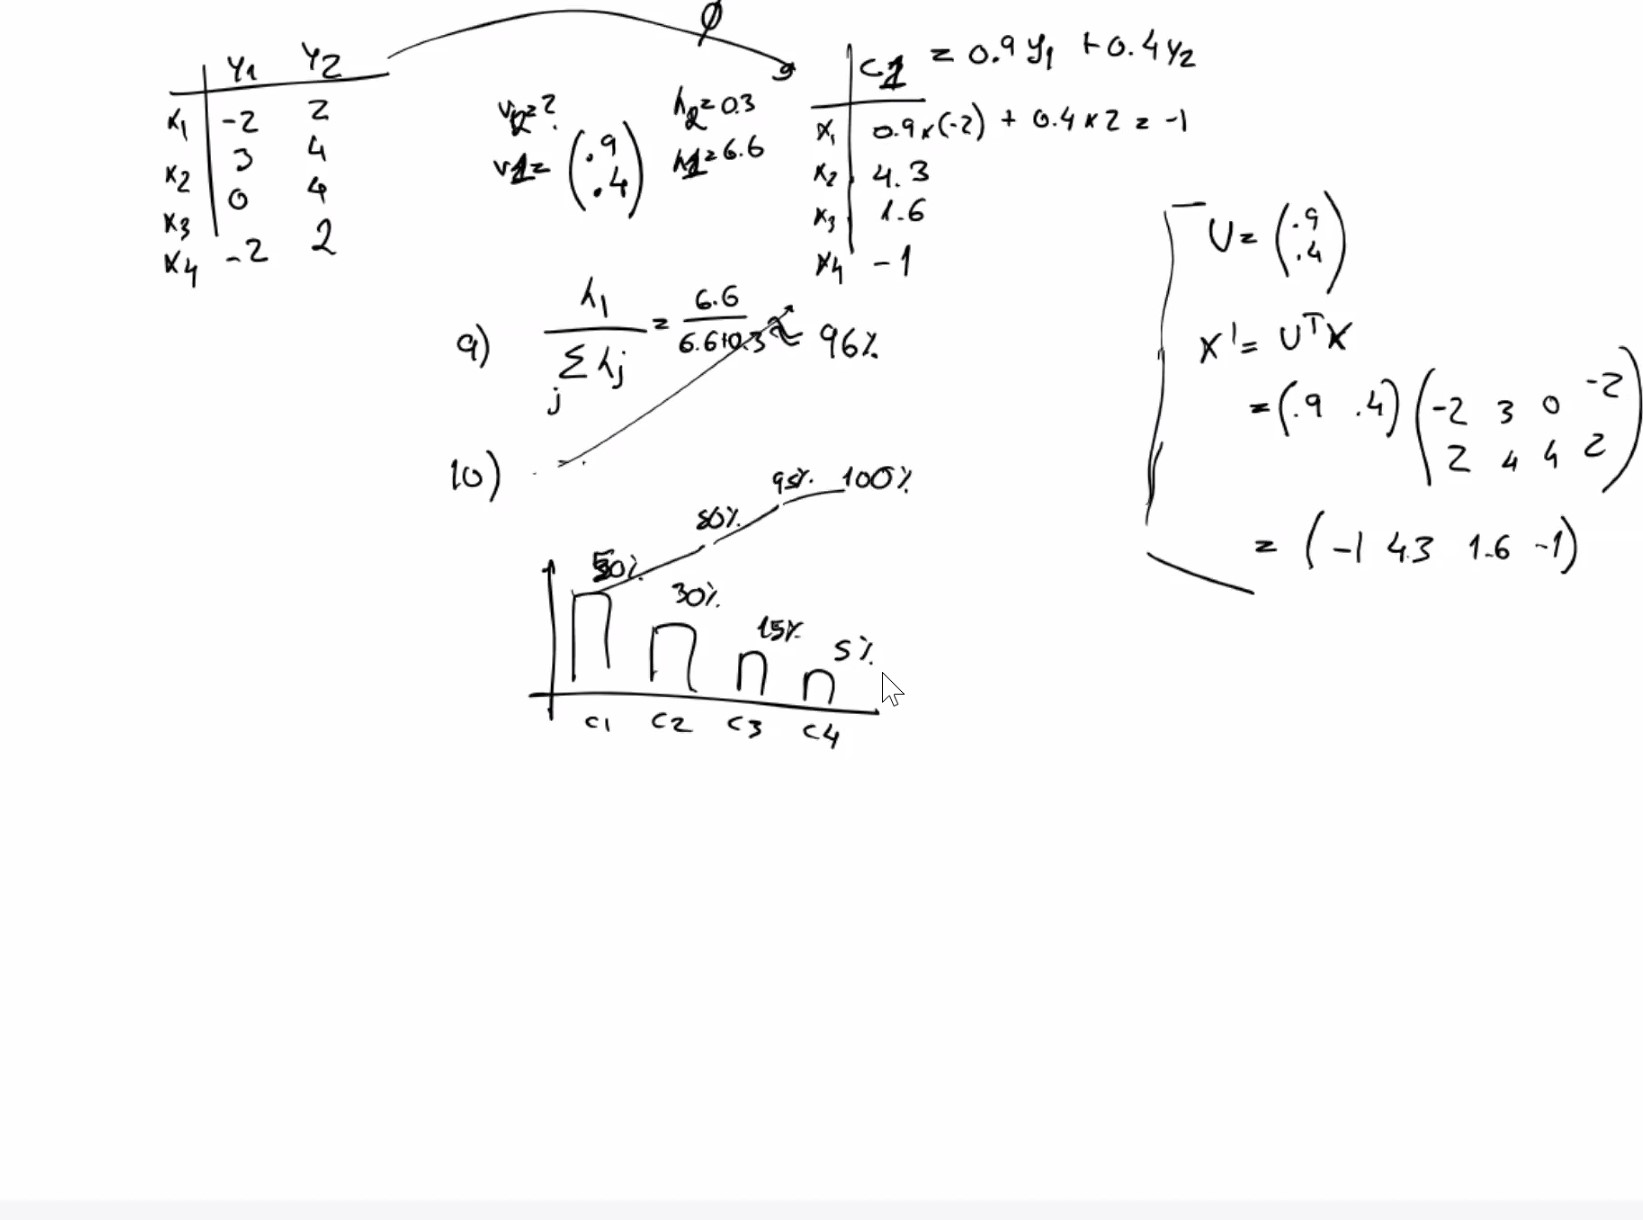 y1 y2
x1 -2 2
x2 3 4
x3 0 4
x4 -2 2
ϕ
v2=? λ2=0.3
v1= (.9 .4) λ1=6.6
c1 = 0.9 y1 + 0.4 y2
x1 0.9×(-2) + 0.4×2 = -1
x2 4.3
x3 1.6
x4 -1
9) λ1 / Σj λj = 6.6 / 6.6+0.3 ≈ 96%
10)
50% 80% 95% 100%
30% 15% 5%
c1 c2 c3 c4
U= (.9 .4)
X'= U^T X
= (.9 .4) (-2 3 0 -2
2 4 4 2)
= (-1 4.3 1.6 -1)